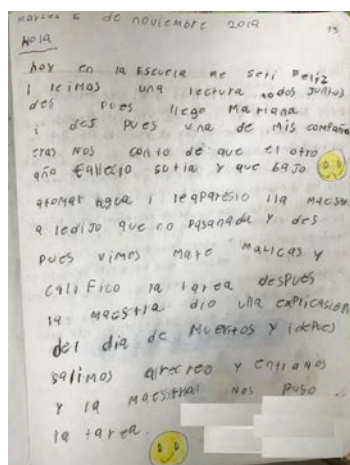 martes 5 de noviembre 2019
13
Hola
hoy en la Escuela me sentí Feliz
i leimos una lectura todos juntos
des pues llego Mariana
i des pues una de mis compañe
eras nos conto de que el otro
año falleció su tia y que bajo
atomar agua i le aparesio i la maestr
a le dijo que no pasanada y des
pues vimos mate maticas y
califico la tarea despues
la maestra dio una explicasion
del dia de muertos y idepues
salimos alrecreo y entramos
y la maestra nos puso
la tarea.